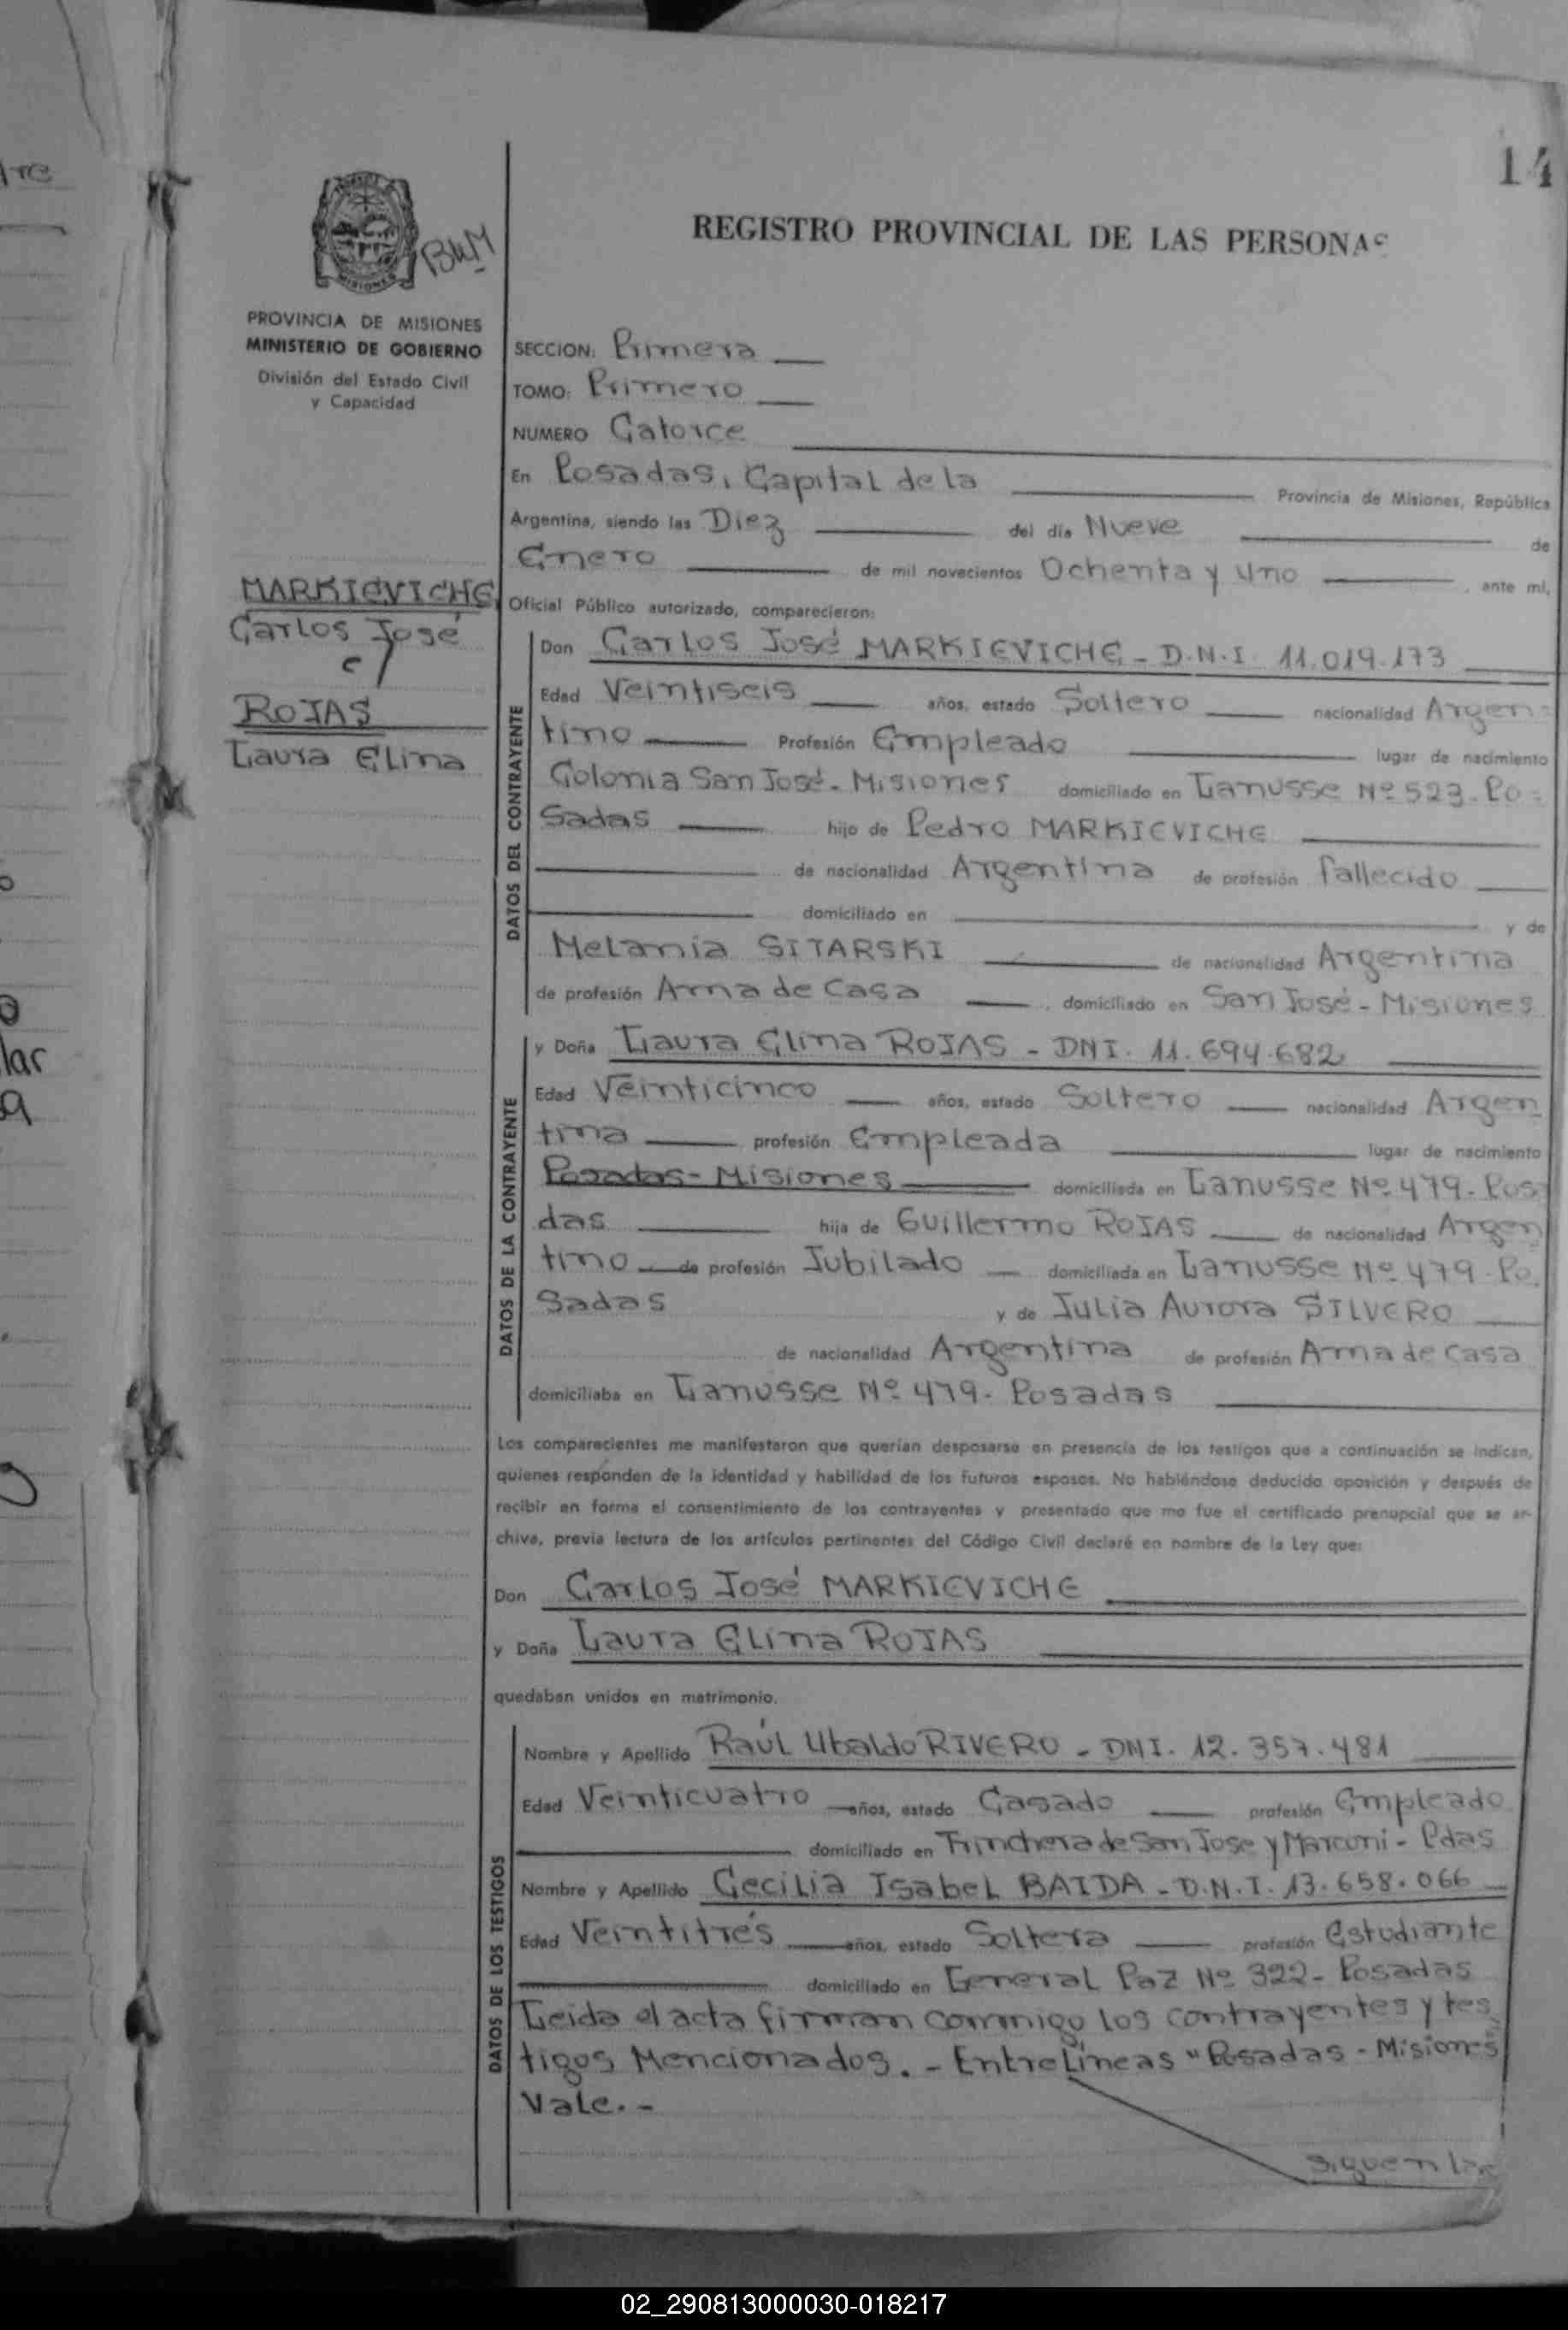 14
REGISTRO PROVINCIAL DE LAS PERSONAS
MISIONES
PROVINCIA DE MISIONES
MINISTERIO DE GOBIERNO
División del Estado Civil
y Capacidad
MARKIEVICHE
Carlos José
c/
ROJAS
Laura Elina
SECCION: Primera
TOMO: Primero
NUMERO Catorce
En Posadas, Capital de la Provincia de Misiones, República
Argentina, siendo las Diez del día Nueve de
Enero de mil novecientos Ochenta y uno, ante mi,
Oficial Público autorizado, comparecieron:
DATOS DEL CONTRAYENTE
Don Carlos José MARKIEVICHE - D.N.I. 11.019.173
Edad Veintiseis años, estado Soltero nacionalidad Argen-
tino Profesión Empleado lugar de nacimiento
Colonia San José - Misiones domiciliado en Lanusse Nº 523 - Po-
sadas hijo de Pedro MARKIEVICHE
de nacionalidad Argentina de profesión fallecido
domiciliado en y de
Melania SITARSKI de nacionalidad Argentina
de profesión Ama de Casa, domiciliado en San José - Misiones
DATOS DE LA CONTRAYENTE
y Doña Laura Elina ROJAS - DNI. 11.694.682
Edad Veinticinco años, estado Soltero nacionalidad Argen
tina profesión Empleada lugar de nacimiento
Posadas - Misiones domiciliada en Lanusse Nº 479 - Pos
das hija de Guillermo ROJAS de nacionalidad Argen
tino de profesión Jubilado domiciliada en Lanusse Nº 479 - Po.
sadas y de Julia Aurora SILVERO
de nacionalidad Argentina de profesión Ama de casa
domiciliaba en Lanusse Nº 479 - Posadas
Los comparecientes me manifestaron que querían desposarse en presencia de los testigos que a continuación se indican,
quienes responden de la identidad y habilidad de los futuros esposos. No habiéndose deducido oposición y después de
recibir en forma el consentimiento de los contrayentes y presentado que me fue el certificado prenupcial que se ar-
chiva, previa lectura de los artículos pertinentes del Código Civil declaré en nombre de la Ley que:
Don Carlos José MARKIEVICHE
y Doña Laura Elina ROJAS
quedaban unidos en matrimonio.
DATOS DE LOS TESTIGOS
Nombre y Apellido Raúl Ubaldo RIVERO - DNI. 12.357.481
Edad Veinticuatro años, estado Casado profesión Empleado
domiciliado en Trinchera de San Jose y Marconi - Pdas
Nombre y Apellido Cecilia Isabel BAIDA - D.N.I. 13.658.066
Edad Veintitrés años, estado Soltera profesión Estudiante
domiciliado en General Paz Nº 322 - Posadas
Leida el acta firman conmigo los contrayentes y tes
tigos Mencionados. - EntreLíneas "Posadas - Misiones
Vale. -
siguen las
02_290813000030-018217